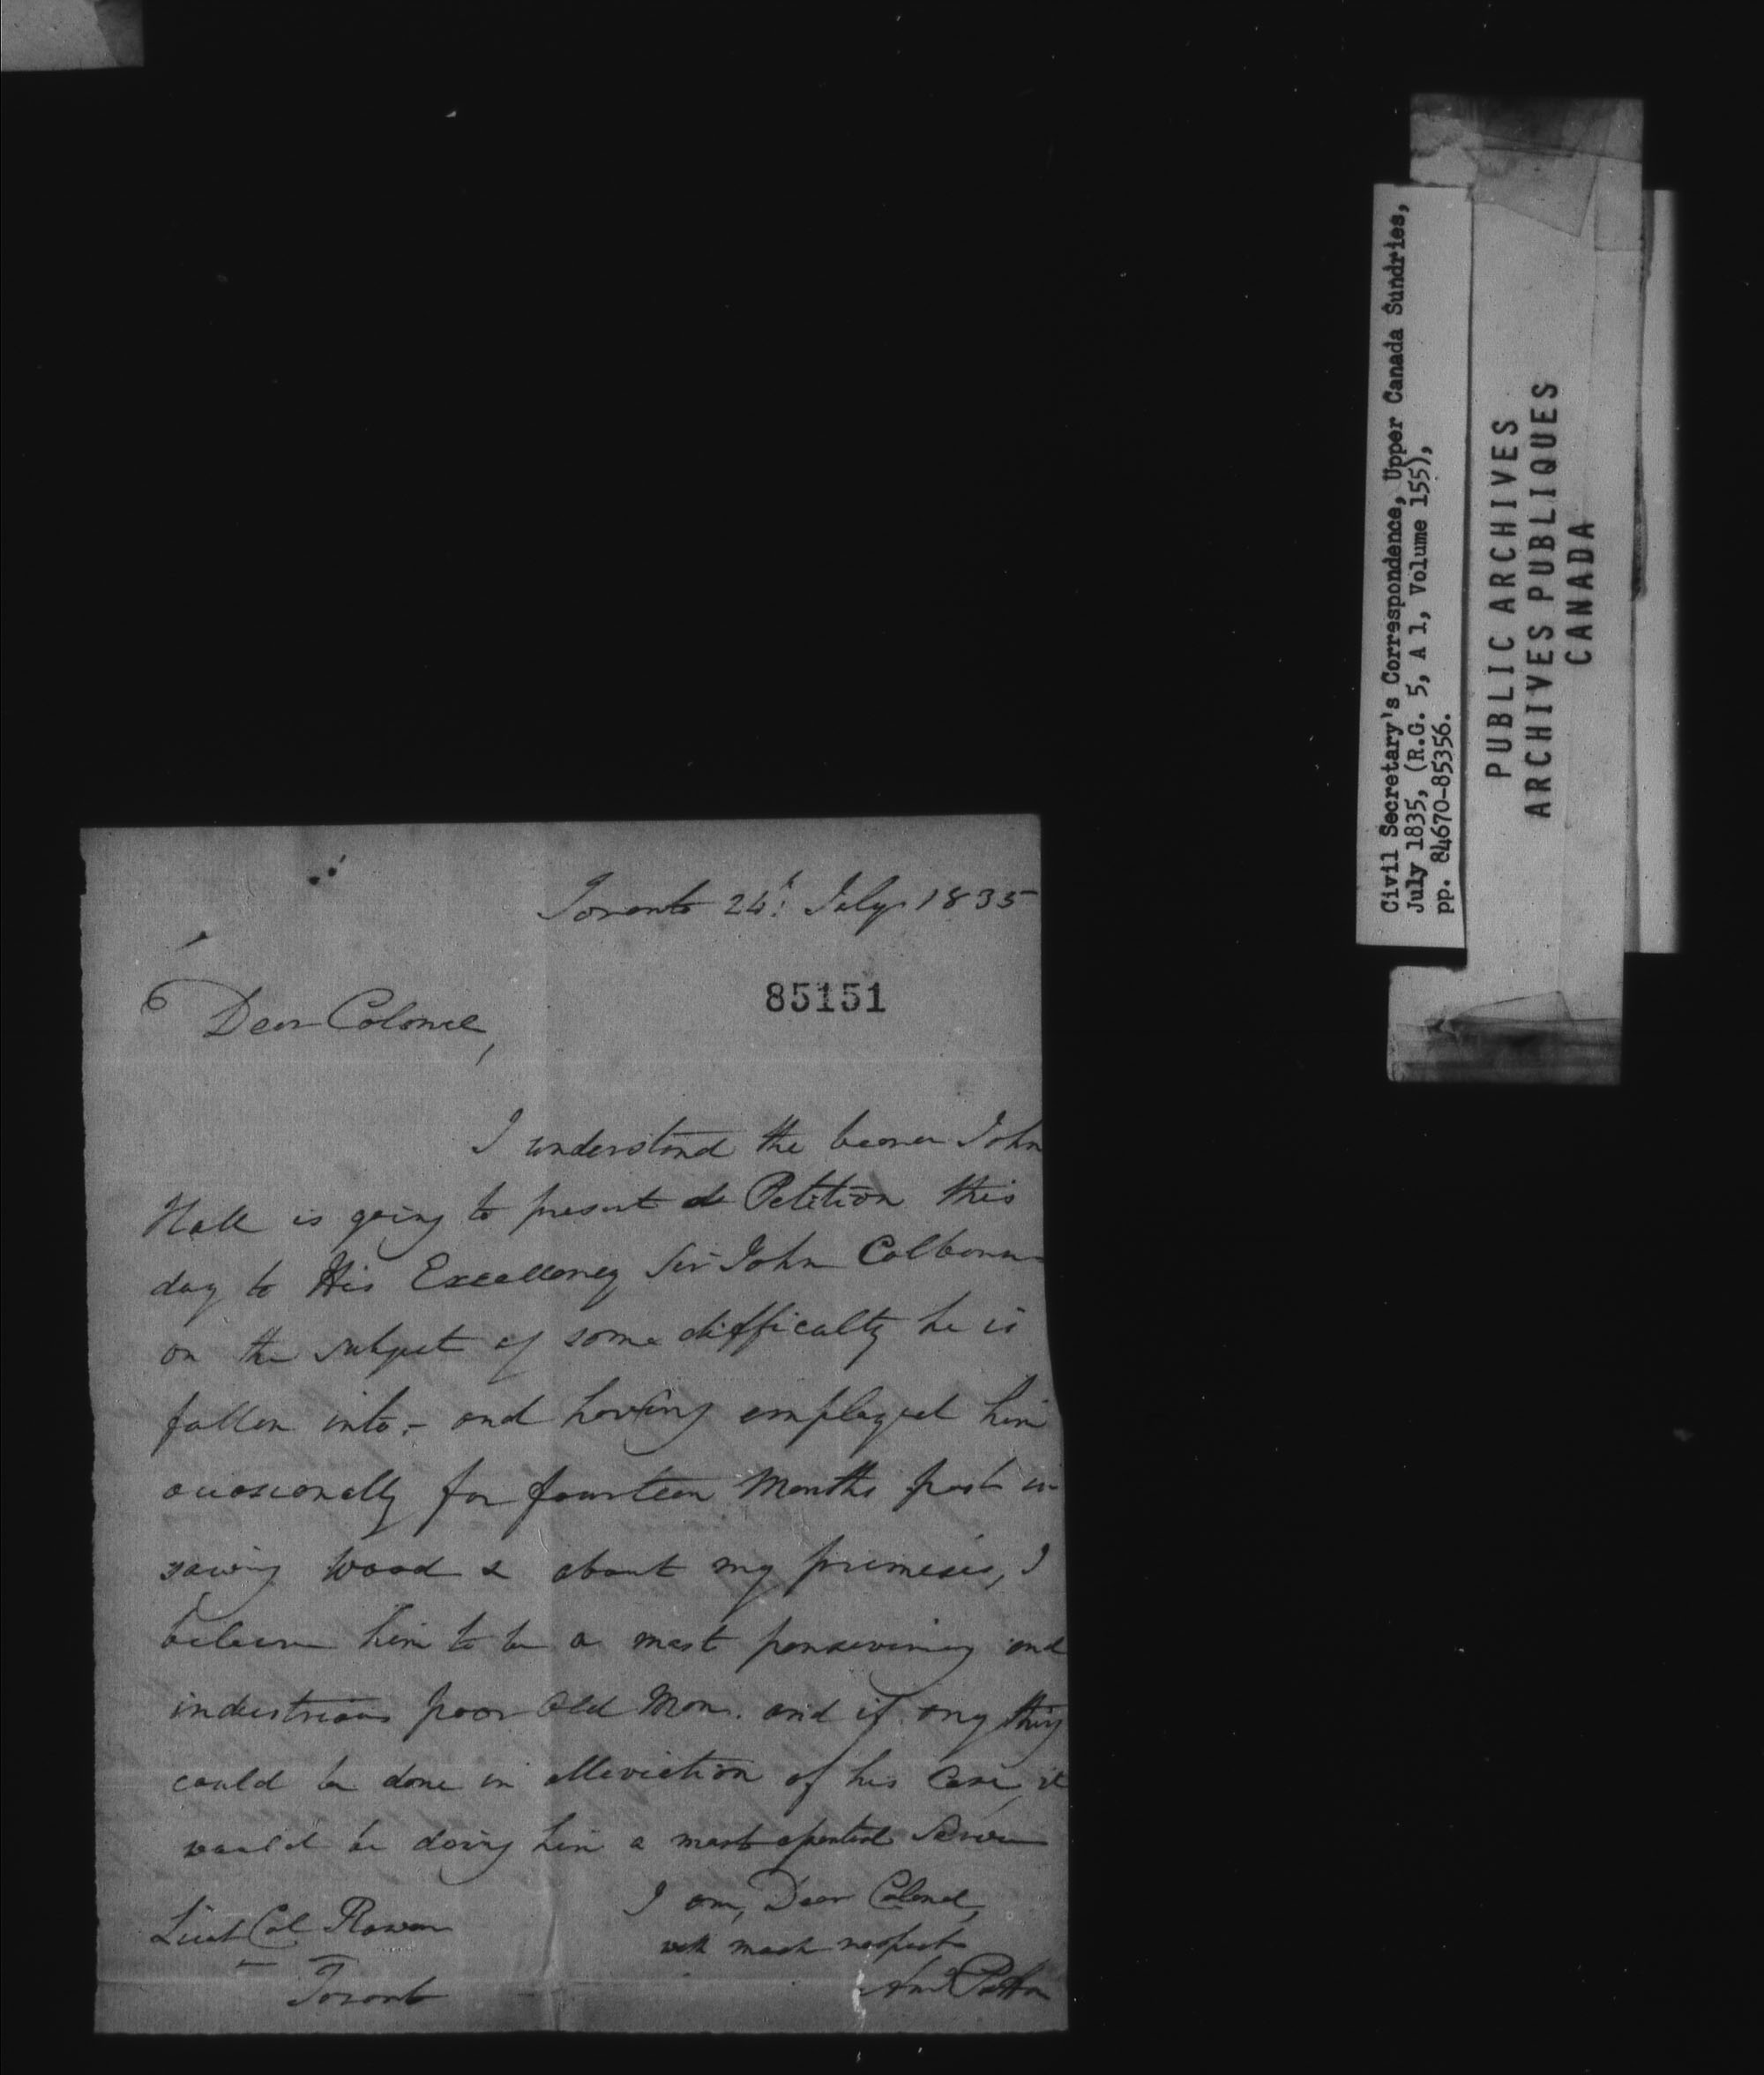 Toronto 24t July 1835
85151
Dear Colonel,
I understand the bearer John
Hall is going to present a Petition this
day to His Excellency Sir John Colborne
on the subject of some difficulty he is
fallen into,- and having employed him
occasionally for fourteen Months past in
sawing Wood & about my premises, I
believe him to be a most persevering and
industrious poor Old Man. and if any thing
could be done in alleviation of his Case, it
would be doing him a most essential Service
I am, Dear Colonel,
with much respect
Lieut Col Rowan
Toronto
Civil Secretary's Correspondence, Upper Canada Sundries,
July 1835, (R.G. 5, A 1, Volume 155),
pp. 84670-85356.
PUBLIC ARCHIVES
ARCHIVES PUBLIQUES
CANADA